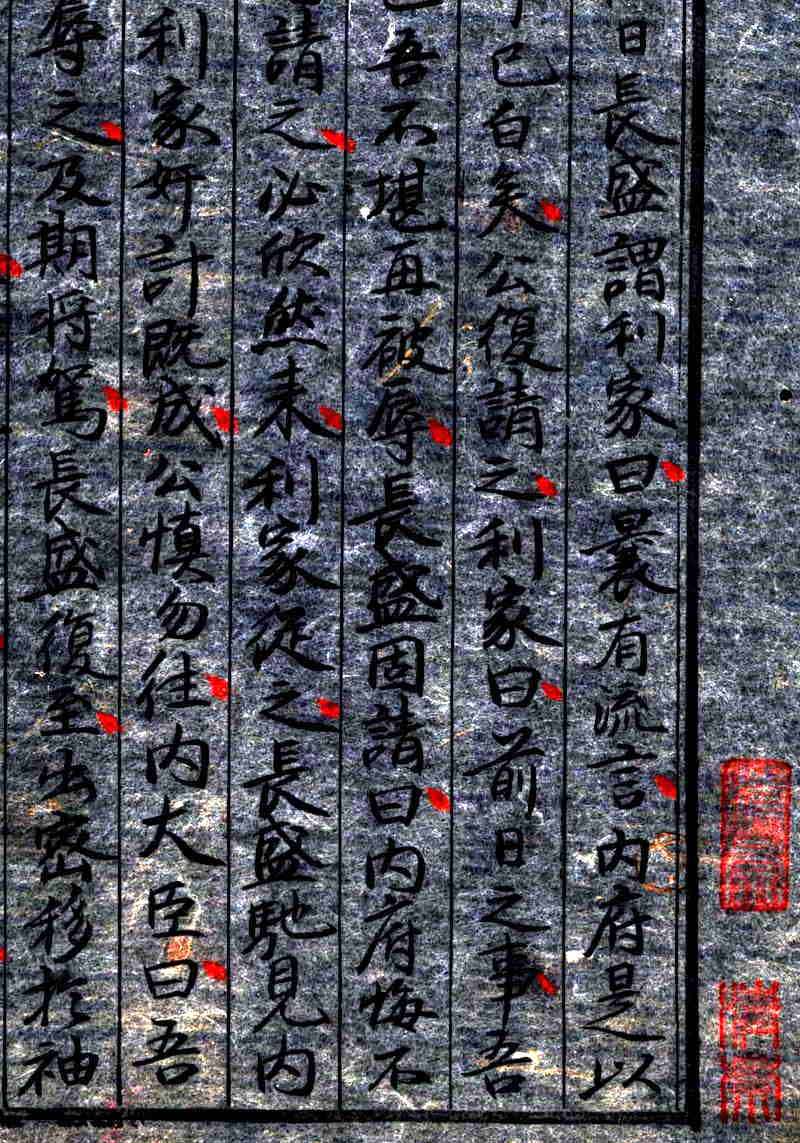 日長盛謂利家曰曩有流言内府是以
已白矣公復請之利家曰前日之事吾
吾不堪再被辱長盛固請曰内府悔不
請之必欣然来利家従之長盛馳見内
利家奸計既成公慎勿往内大臣曰吾
辱之及期将駕長盛復至出密移於袖